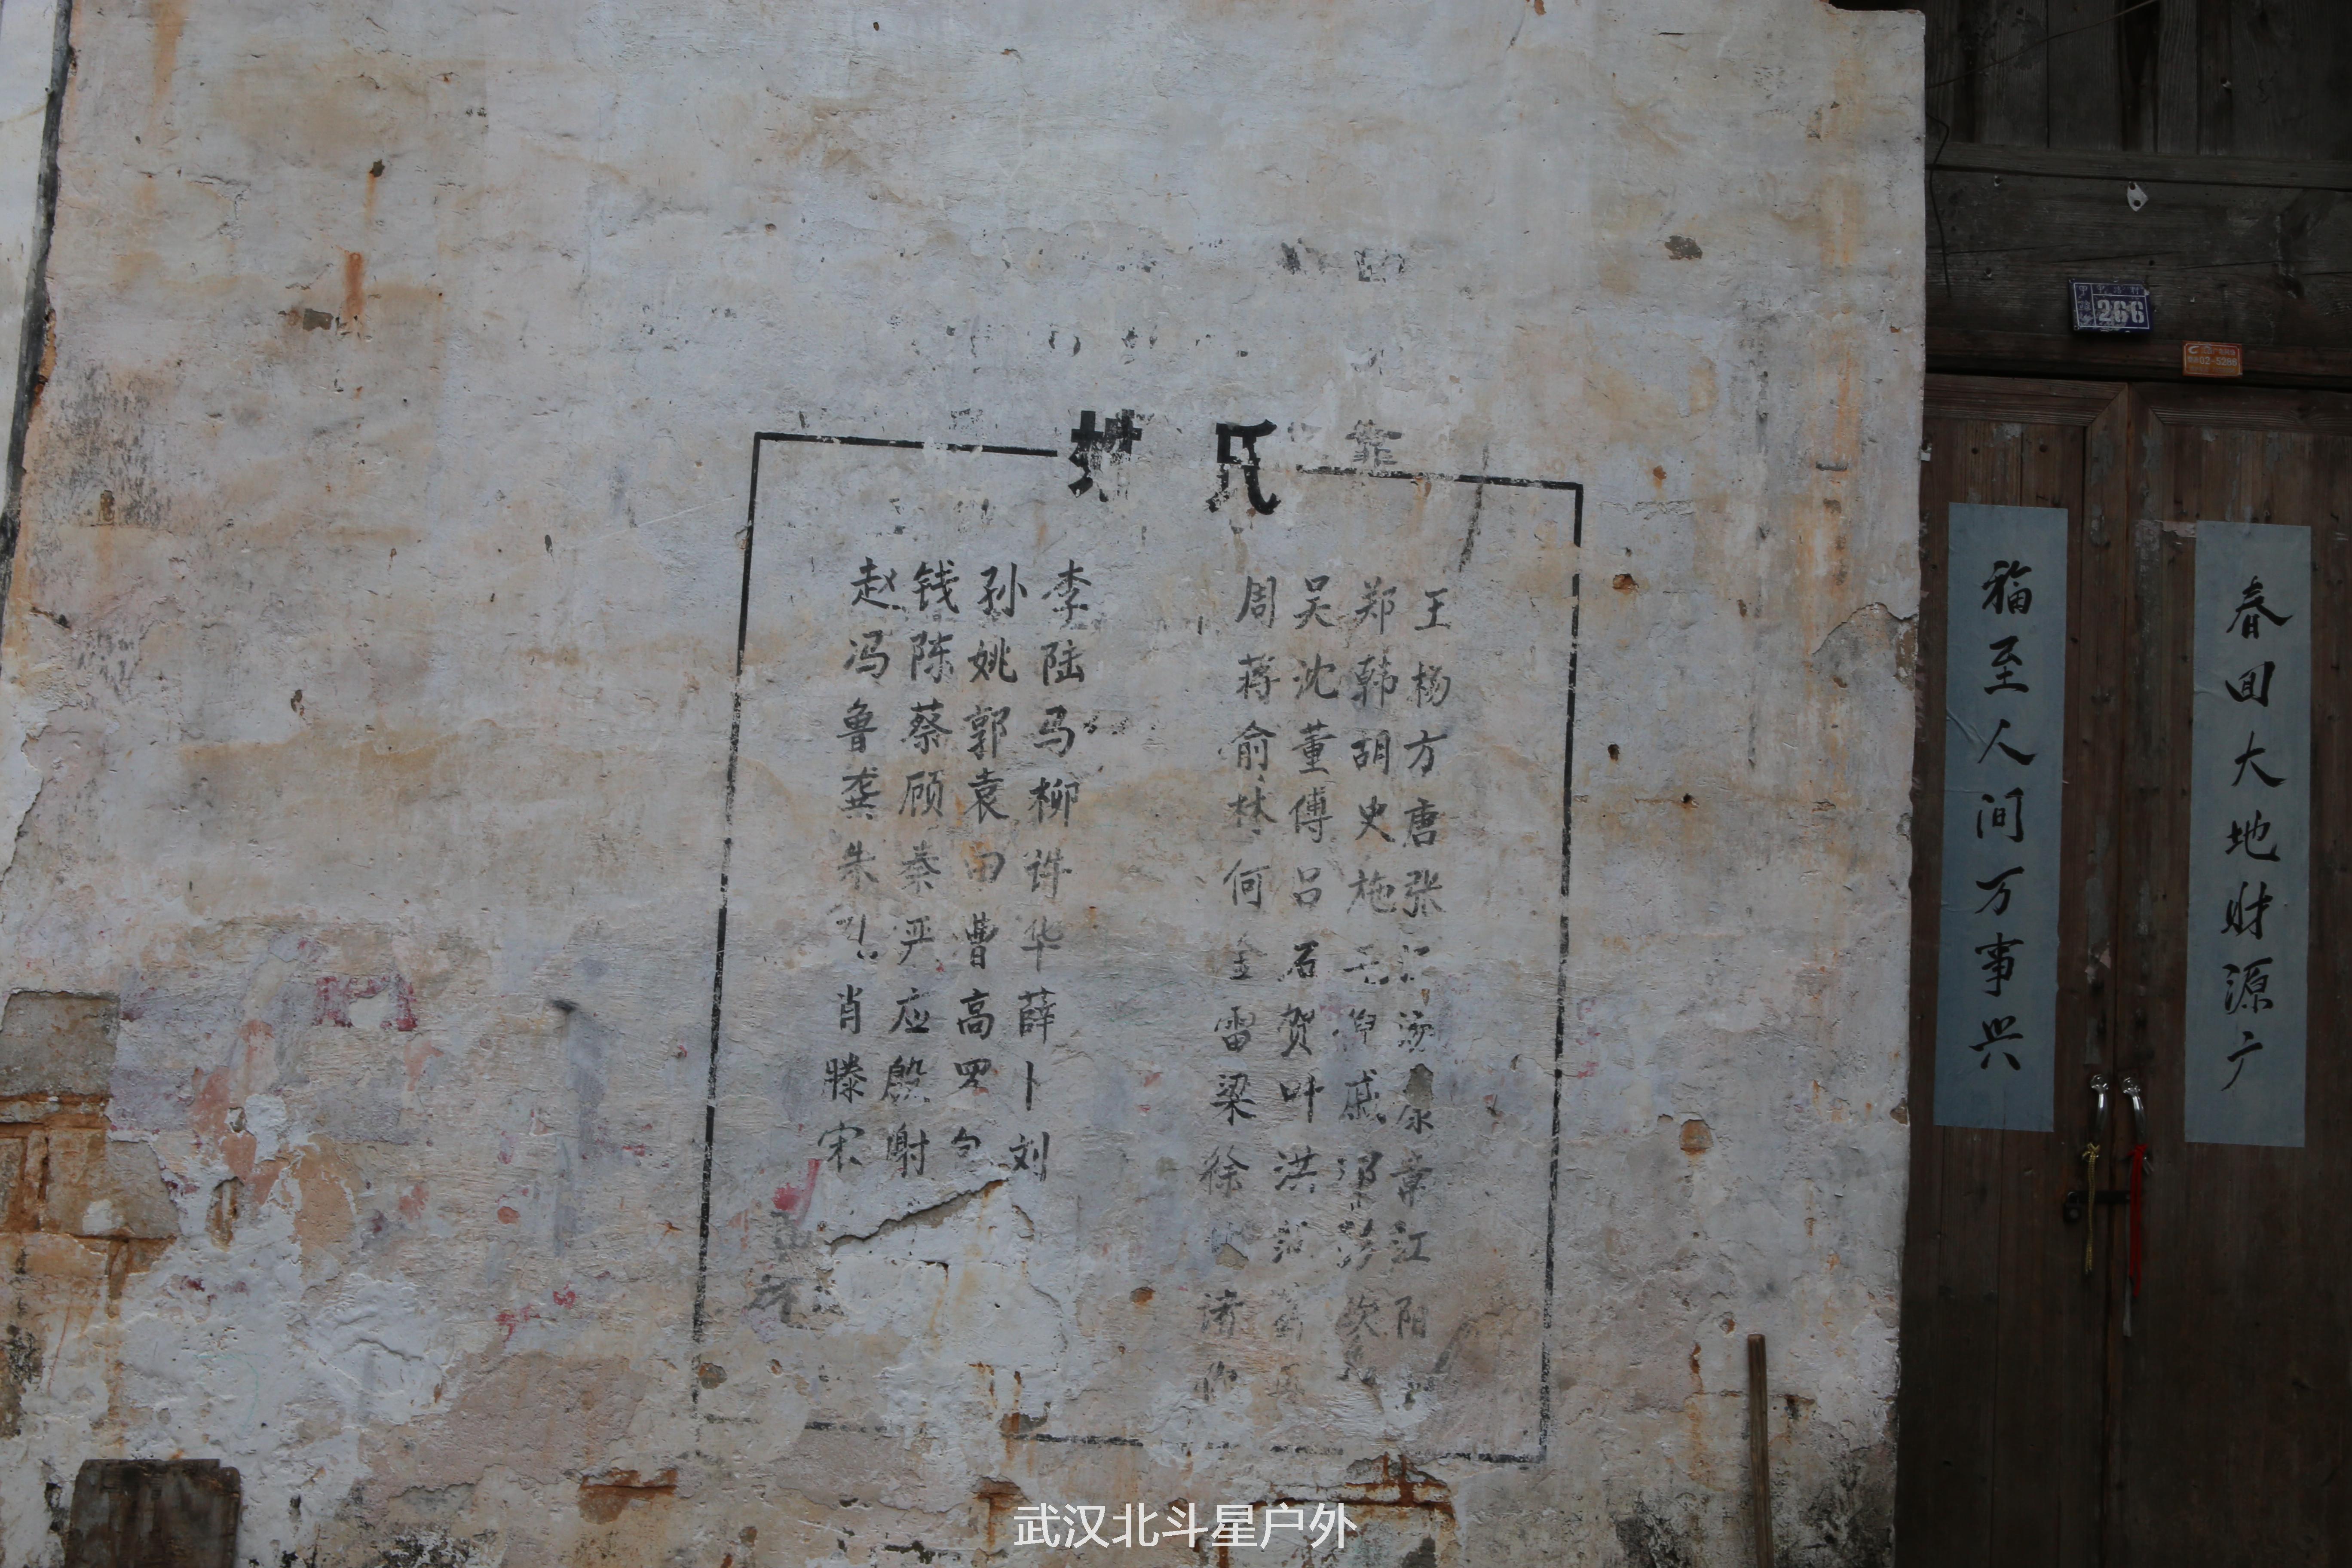 姓 氏
靠
赵钱孙李 周吴郑王
冯陈姚陆 蒋沈韩杨
鲁蔡郭马 俞董胡方
龚顾袁柳 林傅史唐
朱秦田许 何吕施张
严曹华 金石毛
肖应高薛 雷贺倪汤
滕殷罗卜 梁叶戚
宋谢句刘 徐洪邬章
江
诸 阳
福至人间万事兴
春回大地财源广
266
02-5286
武汉北斗星户外